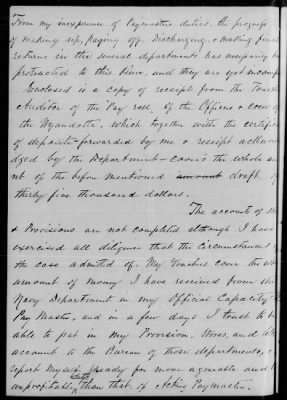 From my inexperience of Paymasters duties, the progress
of making up, paying off, Discharging, & making final
returns in the several departments has necessarily been
protracted to this time, and they are yet incomp
Enclosed is a copy of receipt from the Four
Auditor of the Pay roll of the Officers & crew of
the Wyandotte, which together with the certific
of deposite forwarded by me & receipt acknow
dged by the Department - covers the whole am
nt of the before mentioned amount draft of
thirty five thousand dollars.
The accounts of
& Provisions are not completed although I have
exercised all diligence that the circumstances
the case admitted of. My Vouchers cover the wh
amount of money I have received from the
Navy Department in my Official Capacity
Pay Master, and in a few days I trust to be
able to put in my Provision, Stores, and
account to the Bureau of those departments, &
report myself ready for more agreeable and
unprofitable duties than that of Acting Paymaster.